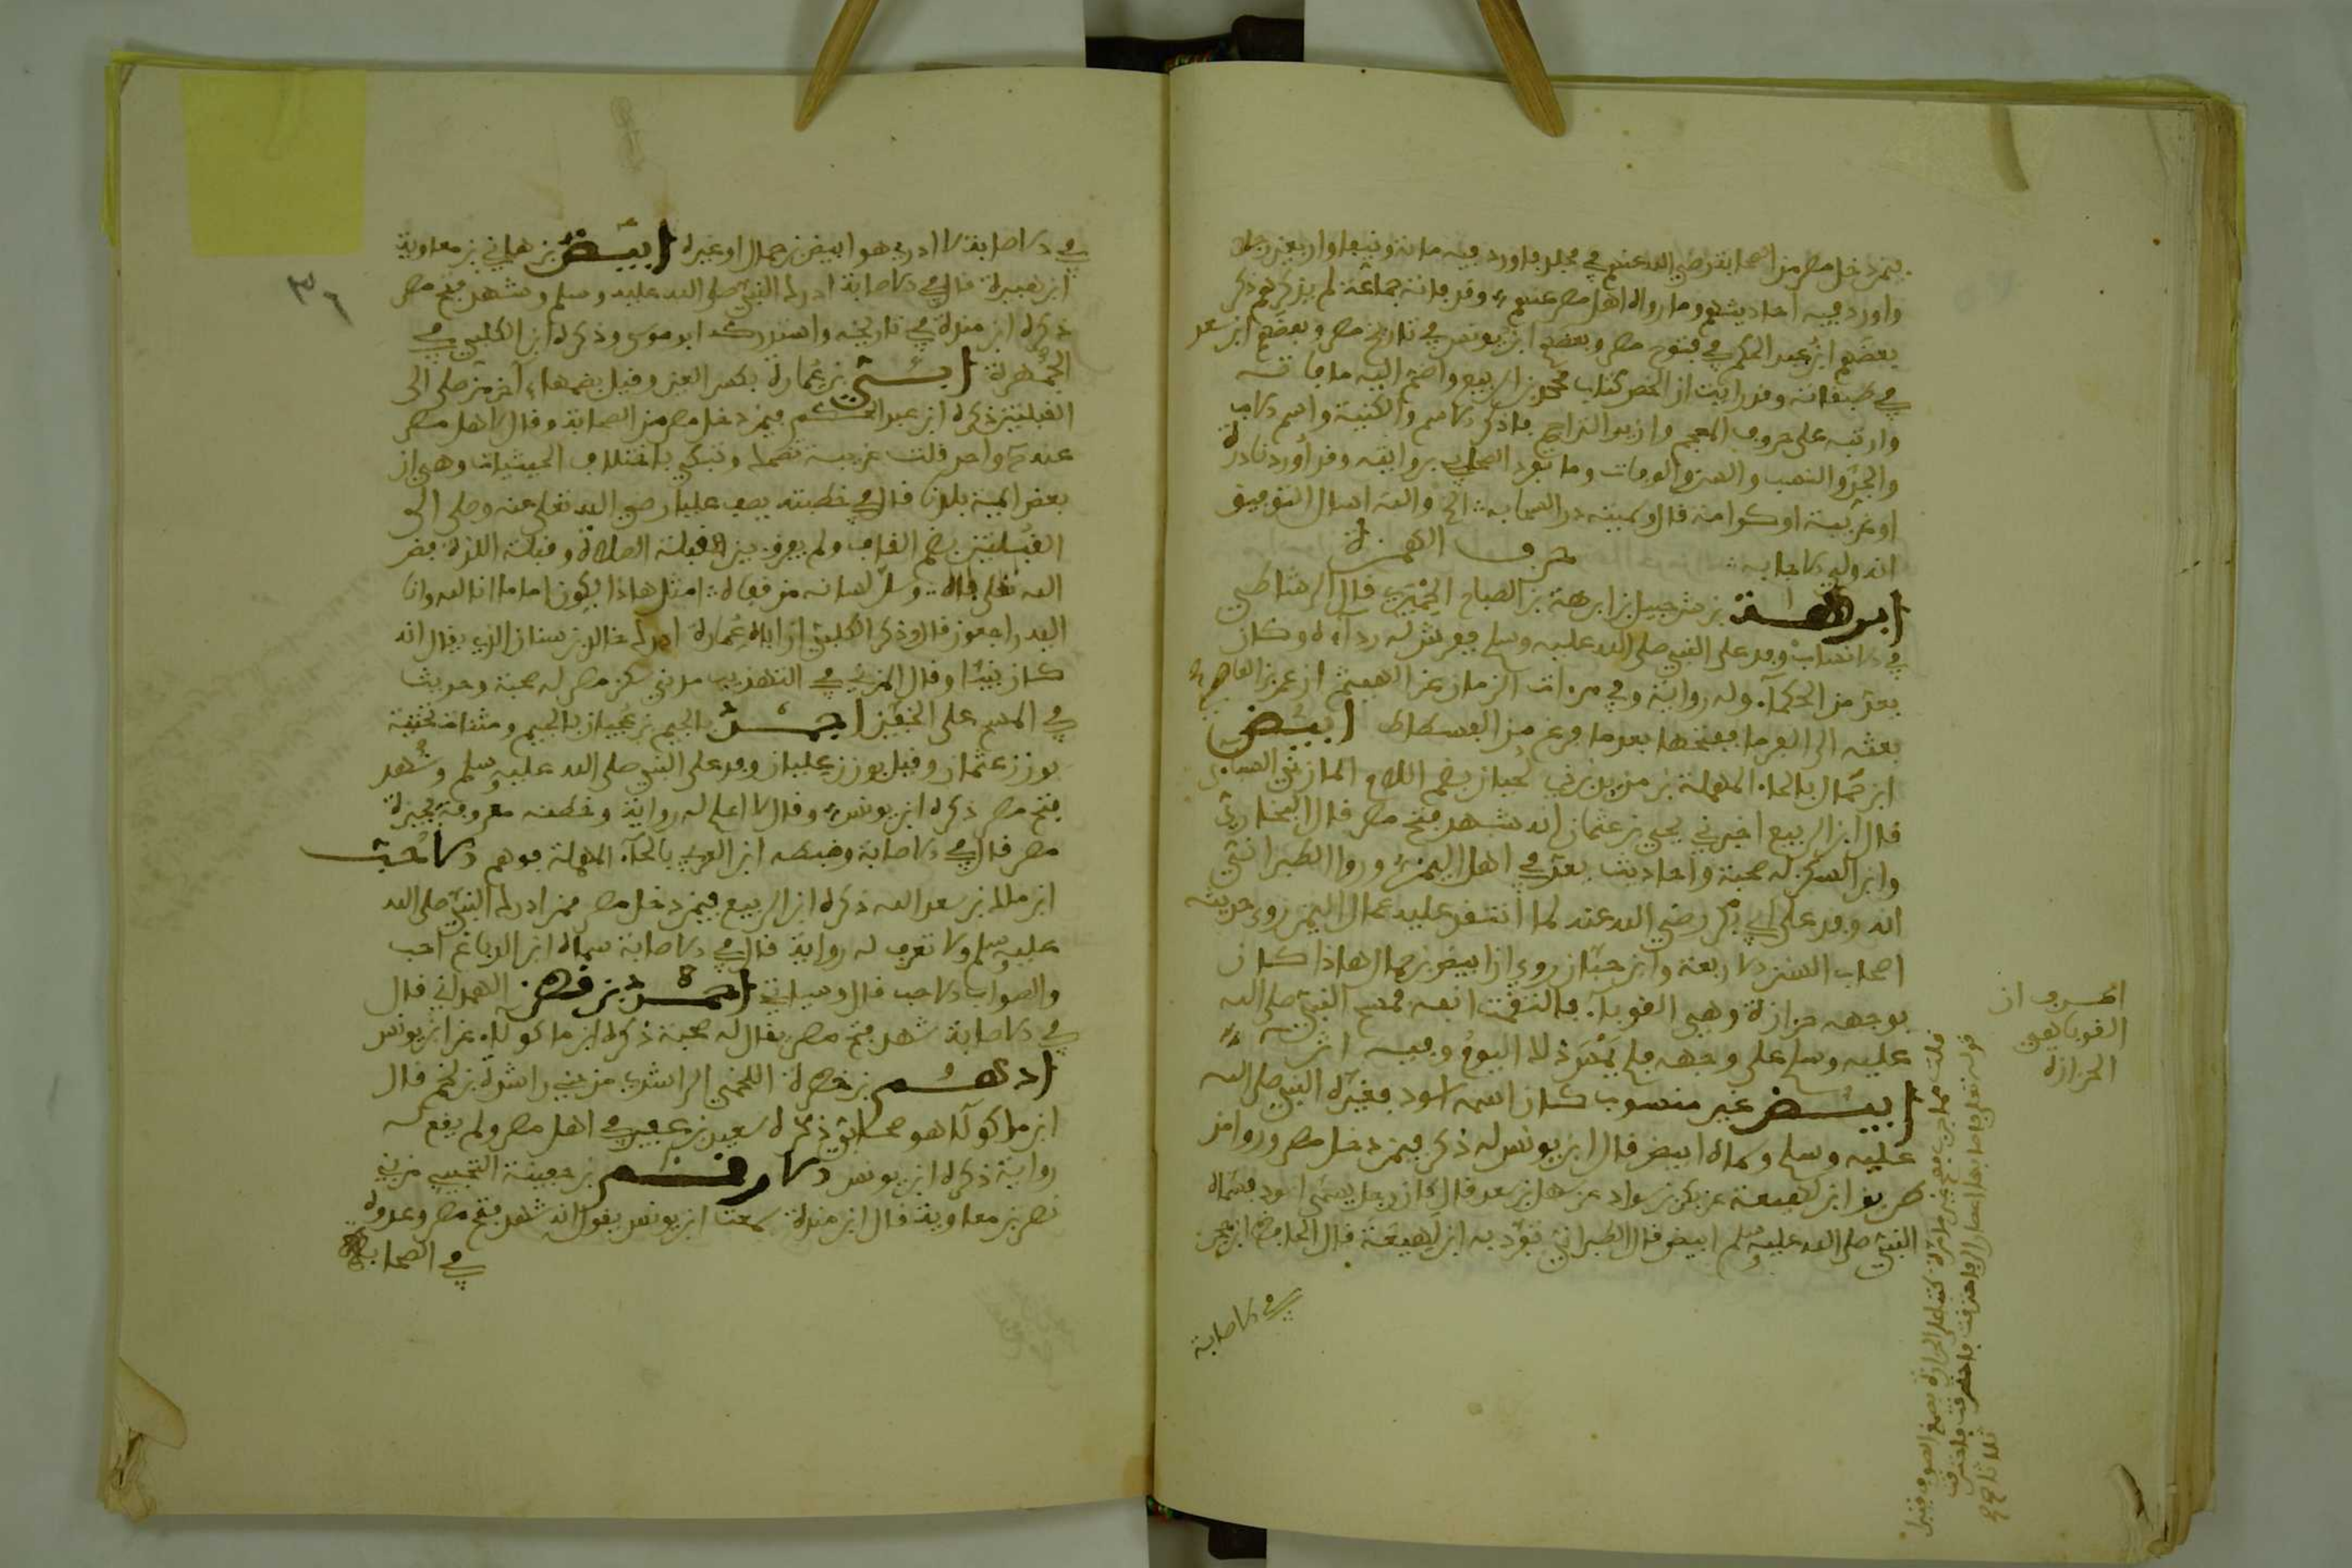 فيمن دخل مصر من الصحابة رضي الله عنهم في مجلد فاورد فيه مائة ونيفا واربعين رجلا
واورد فيه احاديثهم وما رواه اهل مصر عنهم وقد فاته جماعة لم يذكرهم ذكر
بعضهم ابن عبد الحكم في فتوح مصر وبعضهم ابن يونس في تاريخ مصر وبعضهم ابن سعد
في طبقاته وقد رايت ان الخص كتاب محمد بن الربيع واضم اليه ما فاته
وارتبه على حروف المعجم وازيد التراجم فاذكر الاسم والكنية واسم الاب
والجد والنسب والسن والوفات وما تفرد الصحابي بروايته وقد اورد نادرة
او غريبة او كرامة قال وسميته در السحابة الخ والله اسال التوفيق
انه ولي الاجابة
حرف الهمزة
ابرهة بن شرحبيل بن ابرهة بن الصباح الحميري قال الرشاطي
في الانساب وفد على النبي صلى الله عليه وسلم ففرش له رداءه وكان
يعد من الحكماء وله رواية وفي مرءات الزمان عن الهيثم ان عمرو بن العاصي
بعثه الى الفرما ففتحها بعد ما فرغ من الفسطاط ابيض
ابن حمال بالحاء المهملة بن مرثد بن ذي لحيان بضم اللام المازني السبائي
قال ابن الربيع اخبرني يحيى بن عثمان انه شهد فتح مصر قال البخاري
وابن السكن له صحبة واحاديث يعد في اهل اليمن وروا الطبراني
انه وفد على ابي بكر رضي الله عنه لما انتقض عليه عمال اليمن روى حديثه
اصحاب السنن الاربعة وابن حبان روي ان ابيض بن حمال هاذا كان
بوجهه حزازة وهي القوباء فالتقمت انفه فمسح النبي صلى الله
عليه وسلم على وجهه فلم يمس ذلك اليوم وفيه اثر
ابيض غير منسوب كان اسمه اسود فغيره النبي صلى الله
عليه وسلم وسماه ابيض قال ابن يونس له ذكر فيمن دخل مصر وروا من
طريق ابن لهيعة عن بكر بن سواد عن سهل بن سعد قال كان رجل يسمى اسود فسماه
النبي صلى الله عليه وسلم ابيض قال الطبراني تفرد به ابن لهيعة قال الحافظ ابن حجر
في الاصابة
اعرب ان
القوبا هي
الحزازة
في الاصابة لا ادري هو ابيض بن حمال او غيره ابيض بن هاني بن معاوية
ابن هبيرة قال في الاصابة ادرك النبي صلى الله عليه وسلم وشهد فتح مصر
ذكره ابن مندة في تاريخه واستدركه ابو موسى وذكره ابن الكلبي في
الجمهرة ابي بن عمارة بكسر العين وقيل بضمها اخر من صلى الى
القبلتين ذكره ابن عبد الحكم فيمن دخل مصر من الصحابة وقال لاهل مصر
عنه واحد قلت غريبة تضحك وتبكي باختلاف الحيثيات وهي ان
بعض ايمة بلدنا قال في خطبته يصف عليا رضي الله تعلى عنه وصلى الى
القبلتين بضم القاف ولم يعرف بين قبلة الصلاة وقبلة اللذة فض
الله تعلى فاه وسل لسانه من قفاه امثل هاذا يكون اماما انا لله وانا
اليه راجعون قال وذكر الكلبي ان اباه عمارة ادرك خالد بن سنان الذي يقال انه
كان نبيئا وقال المزي في التهذيب مدني سكن مصر له صحبة وحديث
في المسح على الخفين اجمد بالجيم بن عجيان بالجيم ومثناة تحتية
بوزن عثمان وقيل بوزن عليان وفد على النبي صلى الله عليه وسلم وشهد
فتح مصر ذكره ابن يونس وقال لا اعلم له رواية وخطته معروفة بجيزة
مصر قال في الاصابة وضبطه ابن الفرات بالحاء المهملة فوهم الاحب
ابن مالك بن سعد الله ذكره ابن الربيع فيمن دخل مصر ممن ادرك النبي صلى الله
عليه وسلم ولا تعرف له رواية قال في الاصابة سماه ابن الدباغ احب
والصواب لاحب قال وسياتي احمد بن قطن الهمداني قال
في الاصابة شهد فتح مصر يقال له صحبة ذكره ابن ماكولا عن ابن يونس
ادهم بن خضرة اللخمي الراشدي من بني راشدة بن لخم قال
ابن ماكولا هو صحابي ذكره سعيد بن عفير في اهل مصر ولم يقع له
رواية ذكره ابن يونس الارقم بن جفينة التجيبي من بني
نصر بن معاوية قال ابن مندة سمعت ابن يونس يقول انه شهد فتح مصر وعداده
في الصحابة